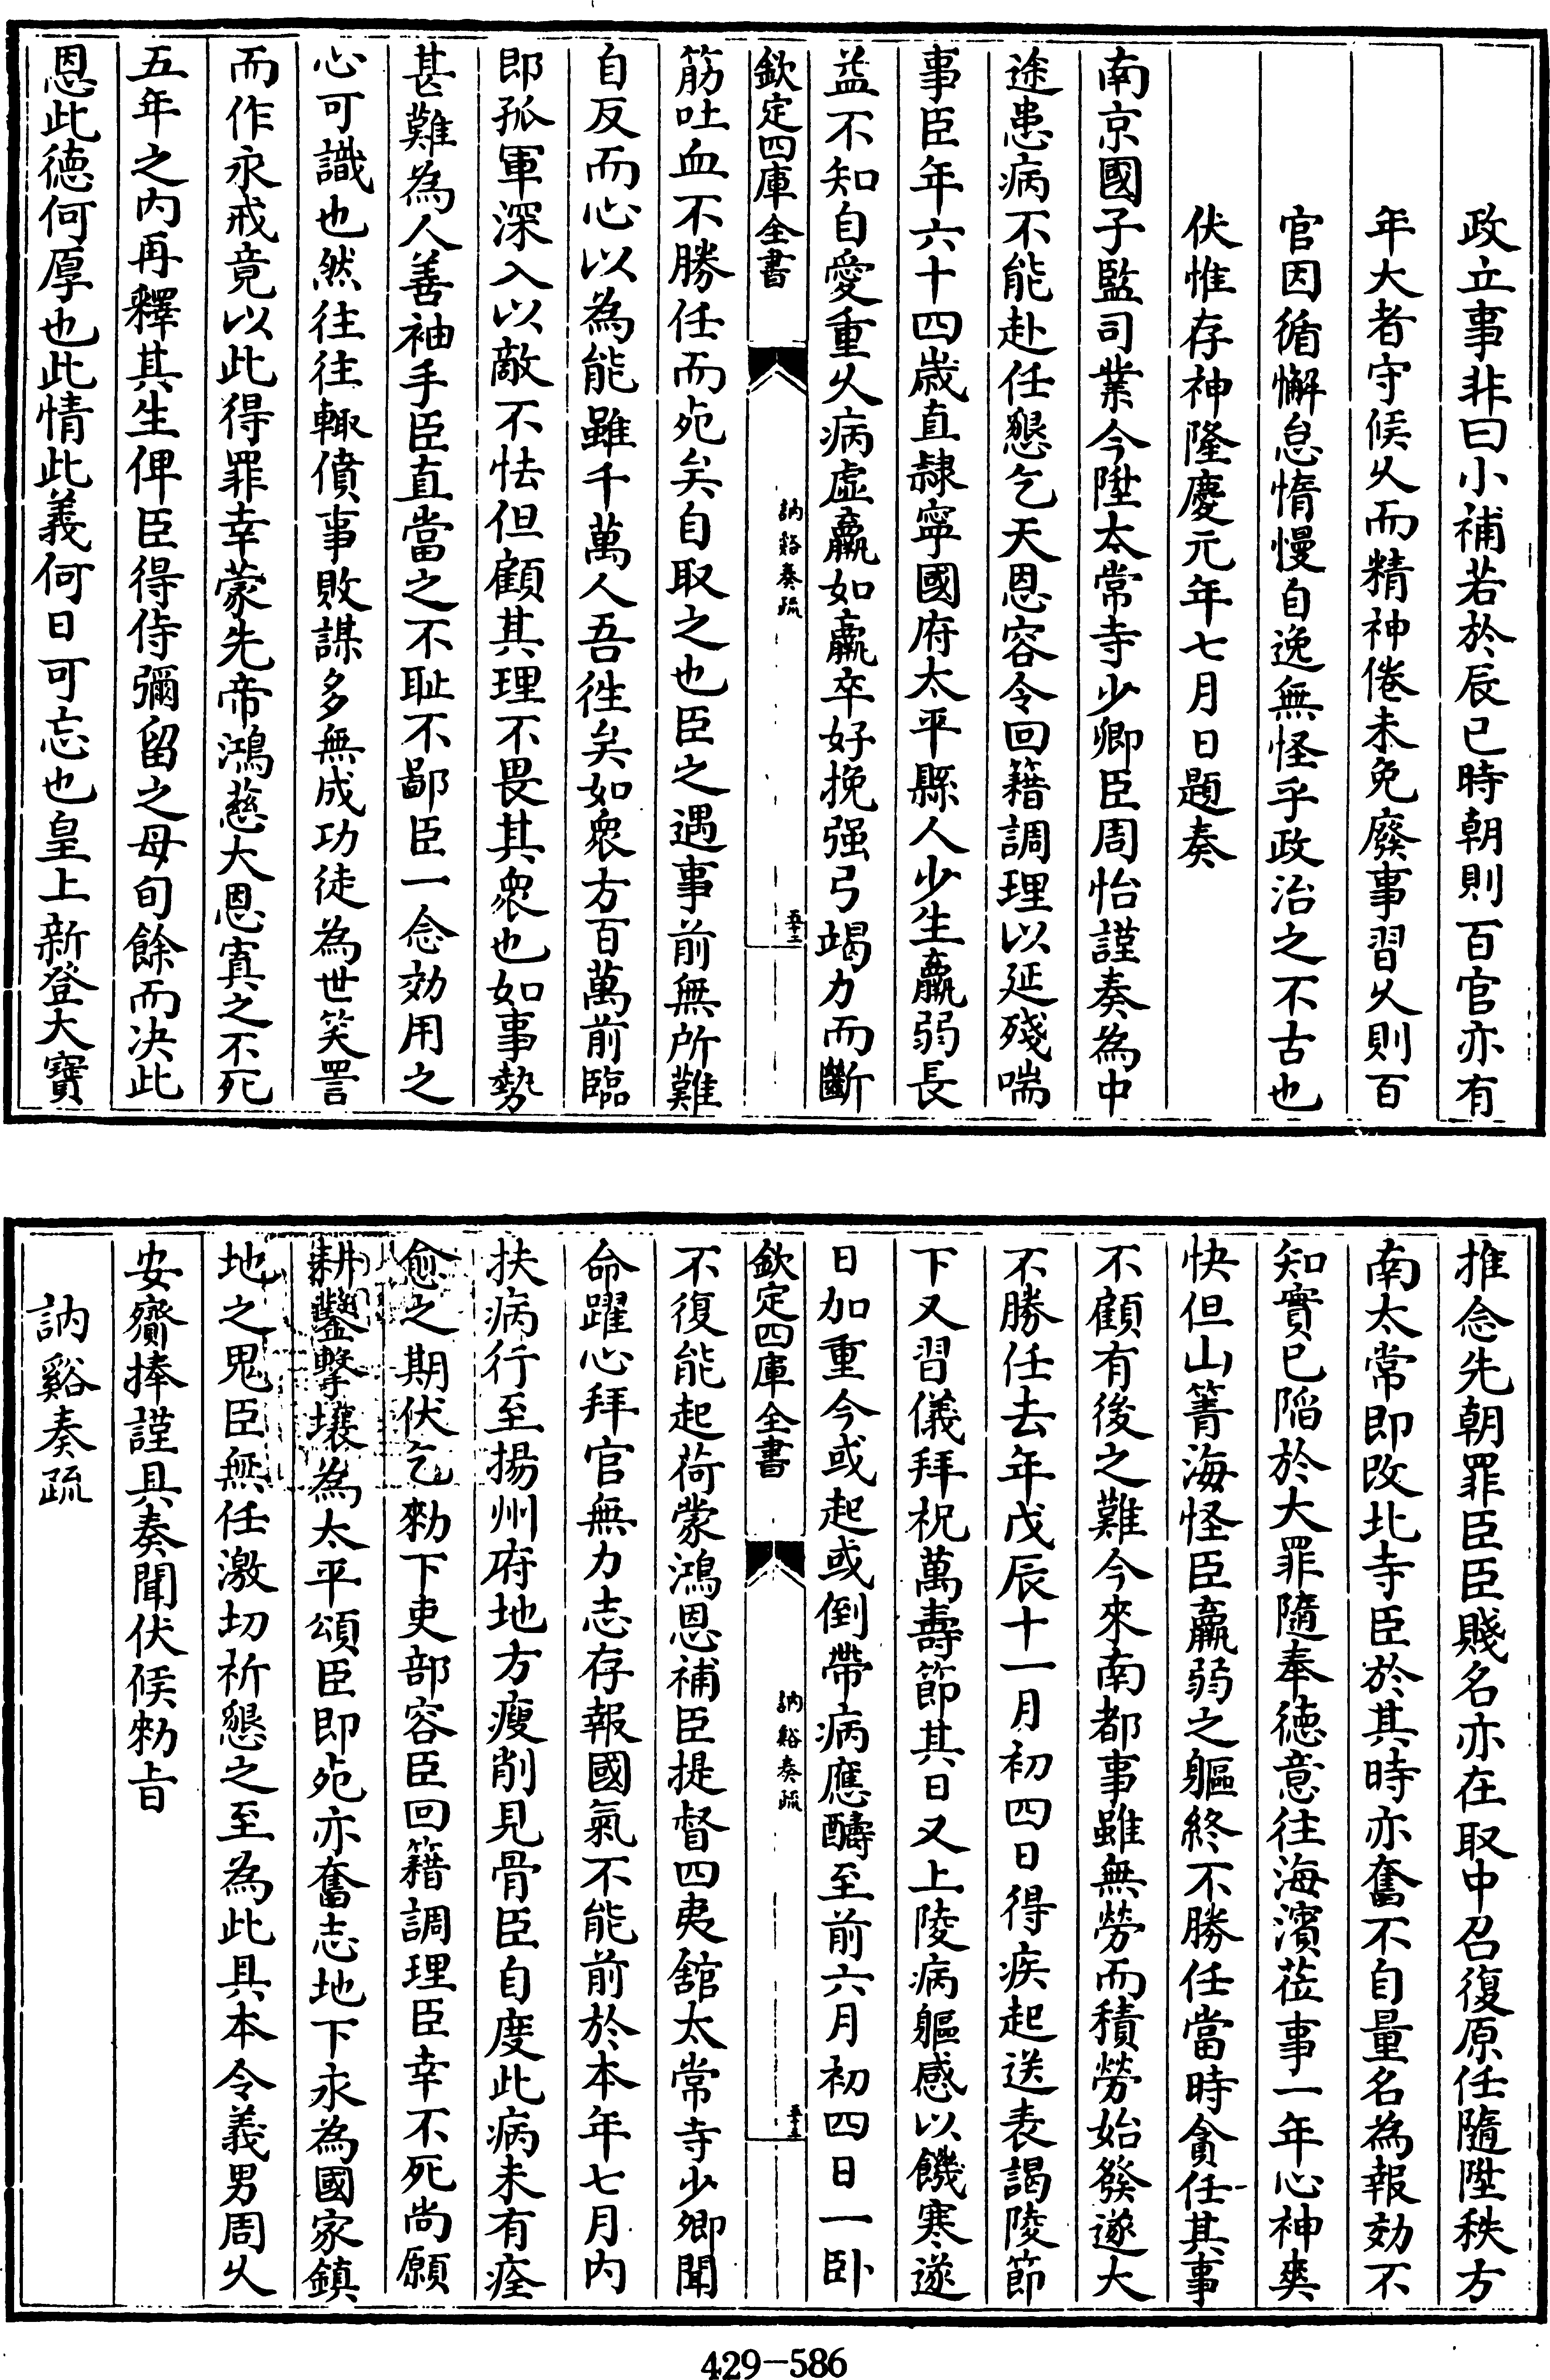 政立事非曰小補若於辰已時朝則百官亦有
年大者守候乆而精神倦未免廢事習乆則百
官因循懈怠惰慢自逸無怪乎政治之不古也
伏惟存神隆慶元年七月日題奏
南京國子監司業今陞太常寺少卿臣周怡謹奏為中
途患病不能赴任懇乞天恩容令回籍調理以延殘喘
事臣年六十四歲直隷寧國府太平縣人少生羸弱長
益不知自愛重乆病虛羸如羸卒好挽强弓竭力而斷
欽定四庫全書
訥谿奏疏
五十二
筋吐血不勝任而㱙矣自取之也臣之遇事前無所難
自反而心以為能雖千萬人吾徃矣如衆方百萬前臨
即孤軍深入以敵不怯但顧其理不畏其衆也如事勢
甚難為人善袖手臣直當之不耻不鄙臣一念効用之
心可識也然往往輙僨事敗謀多無成功徒為世笑詈
而作永戒竟以此得罪幸蒙先帝鴻慈大恩寘之不死
五年之内再釋其生俾臣得侍彌留之母旬餘而决此
恩此德何厚也此情此義何日可忘也皇上新登大寶
推念先朝罪臣臣賤名亦在取中召復原任隨陞秩方
南太常即改北寺臣於其時亦奮不自量名為報効不
知實已陷於大罪隨奉德意往海濱莅事一年心神爽
快但山箐海怪臣羸弱之軀終不勝任當時貪任其事
不顧有後之難今來南都事雖無勞而積勞始發遂大
不勝任去年戊辰十一月初四日得疾起送表謁陵節
下又習儀拜祝萬壽節其日又上陵病軀感以饑寒遂
日加重今或起或倒帶病應醻至前六月初四日一卧
欽定四庫全書
訥谿奏疏
五十三
不復能起荷蒙鴻恩補臣提督四夷舘太常寺少卿聞
命躍心拜官無力志存報國氣不能前於本年七月内
扶病行至揚州府地方瘦削見骨臣自度此病未有痊
愈之期伏乞勑下吏部容臣回籍調理臣幸不死尚願
耕鑿擊壤為太平頌臣即㱙亦奮志地下永為國家鎮
地之鬼臣無任激切祈懇之至為此具本令義男周乆
安齎捧謹具奏聞伏候勑㫖
訥谿奏疏
429-586